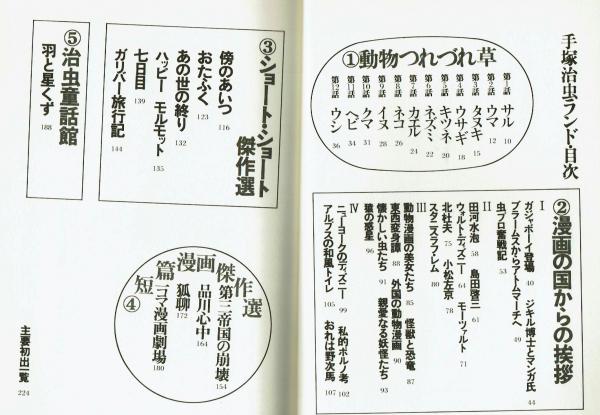 手塚治虫ランド・目次
①動物つれづれ草
第1話 サル 10
第2話 ウマ 12
第3話 タヌキ 15
第4話 ウサギ 18
第5話 キツネ 20
第6話 ネズミ 22
第7話 カエル 24
第8話 ネコ 26
第9話 イヌ 28
第10話 クマ 31
第11話 ヘビ 34
第12話 ウシ 36
②漫画の国からの挨拶
I
ガジャボーイ登場 40 ジキル博士とマンガ氏 44
ブラームスからアトムマーチへ 49
虫プロ奮戦記 53
II
田河水泡 58 島田啓三 61
ウォルト・ディズニー 64 モーツァルト 71
北杜夫 75 小松左京 78
スタニスラフ・レム 80
III
動物漫画の美女たち 85 怪獣と恐竜 87
東西変身譚 88 外国の動物漫画 90
懐かしい虫たち 91 親愛なる妖怪たち 93
猿の惑星 96
IV
ニューヨークのディズニー 99 私的ポルノ考 102
アルプスの和風トイレ 105 おれは野次馬 107
③ショート・ショート傑作選
傍のあいつ 116
おたふく 123
あの世の終り 132
ハッピー モルモット 135
七日目 139
ガリバー旅行記 144
④短篇漫画傑作選
第三帝国の崩壊 154
品川心中 164
狐聊 172
一コマ漫画劇場 180
⑤治虫童話館
羽と星くず 188
主要初出一覧 224